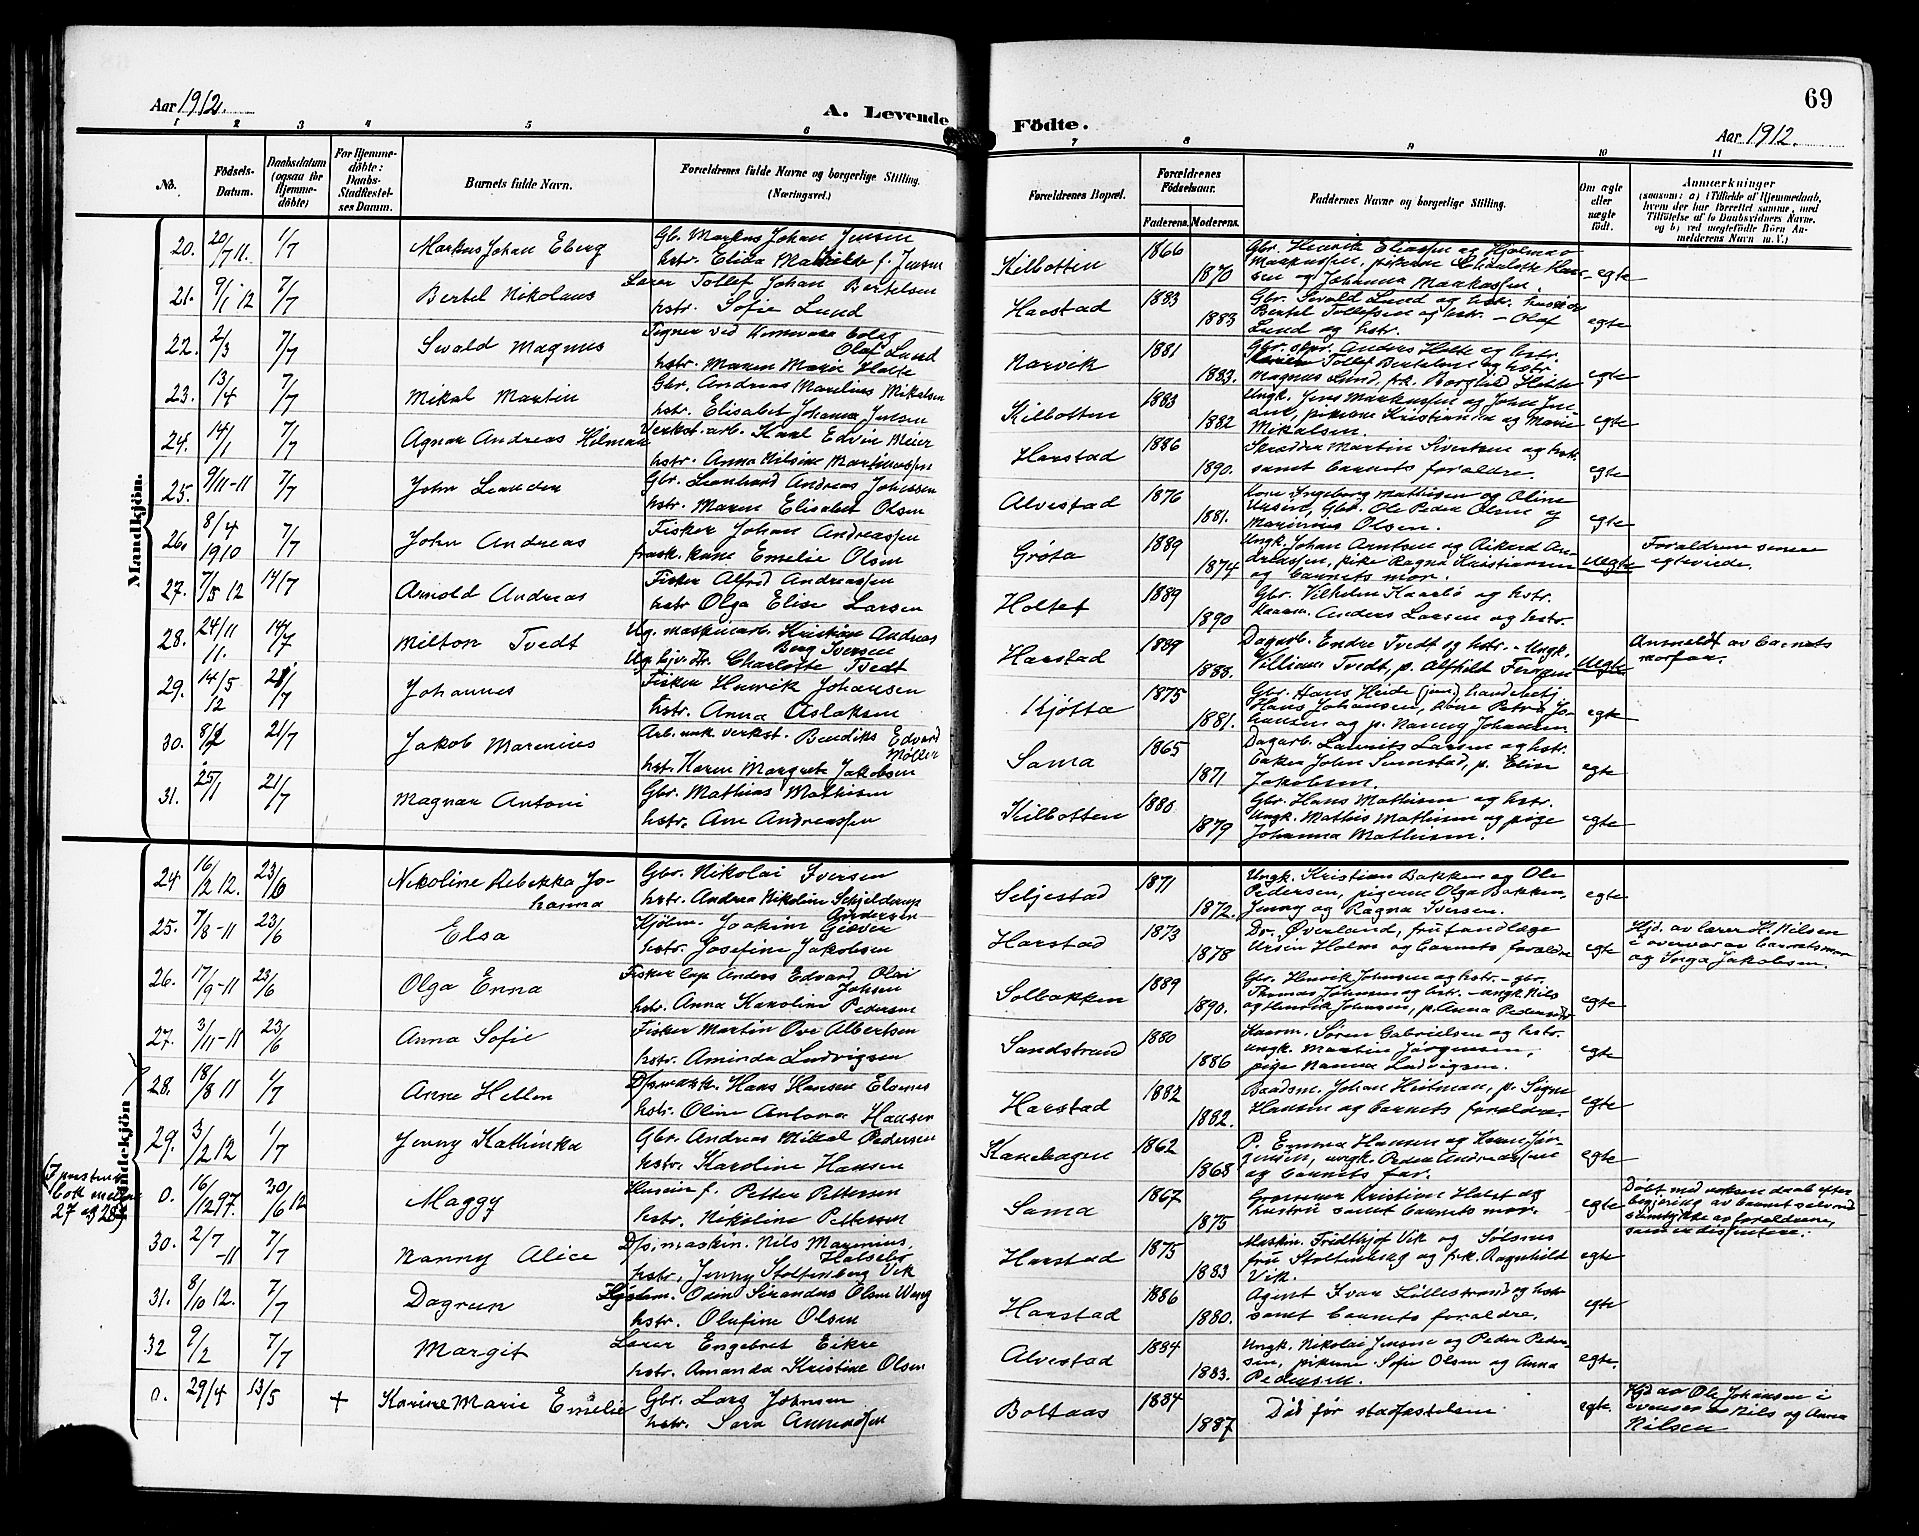 69
Aar 1912.
A. Levende Födte.
Aar 1912.
1 2 3 4 5 6 7 8 9 10 11
No.
Födsels-Datum.
Daabsdatum (ogsaa for Hjemme-döbte)
For Hjemme-döbte: Daabs-Stadfæstel-ses Datum.
Barnets fulde Navn.
Forældrenes fulde Navne og borgerlige Stilling. (Næringsvei.)
Forældrenes Bopæl.
Forældrenes Födselsaar.
Faderens. Moderens.
Faddernes Navne og borgerlige Stilling.
Om ægte eller uægte födt.
Anmærkninger
(saasom: a) i Tilfælde af Hjemmedaab,
hvem der har forrettet samme, med
Tilföielse af to Daabsvidners Navne.
og b) ved uægtefödte Börn An-
melderens Navn m. V.)
Mandkjön.
20. 20/7 11. 1/7 Markus Johan Eberg Gb. Markus Johan Jensen
hstr. Elida Mathilde f. Jensen
Kilbotten 1866 1870 Gbr. Henrik Eliassen og Hjalmar
Markussen, pikerne Charlotte Han-
sen og Johanna Markussen. egte
21. 9/1 12 7/7 Bertel Nikolaus Lærer Tollef Johan Bertelsen
hstr. Sofie Lund
Harstad 1883 1883 Gbr. Sivald Lund og hstr.
Bertel Tollefsen og hstr. – Olaf
Lund og hstr. egte
22. 2/3 7/7 Sivald Magnus Olaf Lund
hstr. Maren Marie Holte
Narvik 1881 1883. Gbr. Anders Holte og hstr.
Tollef Bertelsen og hstr.
Magnus Lund, frk. Borghild Holte egte
23. 13/4 7/7 Mikal Martin Gbr. Andreas Marelius Mikalsen
hstr. Elisabet Johanna Jensen
Kilbotten 1883 1882 Ungk. Jens Markussen og John Jen-
sen, pikerne Kristianna og Marie
Mikalsen. egte
24. 14/1 7/7 Agnar Andreas Hilmar Verkst. arb. Karl Edvin Meier
hstr. Anna Nilsine Martinussen
Harstad 1886 1890. Skrædder Martin Sivertsen og hstr.
samt barnets forældre. egte
25. 9/11-11 7/7 John Leander Gbr. Leonhard Andreas Johnsen
hstr. Maren Elisabet Olsen
Alvestad 1876 1881. Kone Ingeborg Mathisen og Oline
Ursin, Gbr. Ole Peder Olsen og
Marinius Olsen. egte
26. 8/4 1910 7/7 John Andreas Fisker Johan Andreassen
frask. kone Emelie Olsen
Grøta 1889 1874 Ungk. Johan Arntsen og Rikard An-
dreassen, pike Ragna Kristiansen
og barnets mor. Uegte Forældrene senere
egteviede.
27. 7/5 12 14/7 Arnold Andreas Fisker Alfred Andreassen
hstr Olga Elise Larsen
Holte 1889 1890 Gbr. Vilhelm Kaarbø og hstr.
Anders Larsen og hstr. egte
28. 24/11 11. 14/7 Milton Tvedt Ug. maskinarb. Kristian Andreas
Berg Iversen
Ug. Charlotte Tvedt
Harstad 1889 1888. Dagarb. Endre Tvedt og hstr. – Ungk.
William Tvedt, p. Uegte Anmeldt av barnets
morfar.
29. 14/5 12 21/7 Johannes Fisker Henrik Johansen
hstr. Anna Aslaksen
Kjøtta 1875 1881. Gbr. Hans Heide (jun.) handelsbetj
Hans Johansen, kone Petra Jo-
hansen og p. Nanny Johansen. egte
30. 8/2 21/7 Jakob Marenius Arb. mek verkst. Bendiks Edvard
Møller
hst. Karen Margrete Jakobsen
Sama 1865 1871 Dagarb. Laurits Larsen og hstr.
baker John Sunnstad, p. Elise
Jakobsen. egte
31. 25/1 21/7 Magnar Antoni Gbr. Mathias Mathisen
hstr. Ane Andreassen
Kilbotten 1880 1879 Gbr. Hans Mathisen og hstr.
Ungk. Mathis Mathisen og pige
Johanna Mathisen. egte
Kvindekjön
24 16/2 12. 23/6 Nikoline Rebekka Jo-
hanna
Gbr. Nikolai Iversen
hstr. Andrea Nikoline Schjelderup
Andersen
Seljestad 1871 1872. Ungk. Kristian Bakken og Ole
Pedersen, pigerne Olga Bakken,
Jenny og Ragna Iversen. egte
25. 7/8-11 23/6 Elsa Kjøbm. Joakim Giæver
hstr. Josefine Jakobsen
Harstad 1873 1878 Dr. Øverland, fru tandlæge
Ursin Holm og barnets forældre egte Hjd. av lærer H. Nilsen
i overvær av barnets mor
og Inga Jakobsen.
26. 17/9-11 23/6 Olga Enna Fisker Anders Edvard Olai
Johsen
hstr. Anna Karoline Pedersen
Solbakken 1889 1890. Gbr. Henrik Johnsen og hstr. – gbr.
Thomas Johnsen og hstr. – ungk. Nils
og Henrik Johnsen, p. Anna Pedersen egte
27. 3/11-11 23/6 Anna Sofie Fisker Martin Ove Albertsen
hstr. Aminda Ludvigsen
Sandstrand 1880 1886 Kaarm. Søren Gabrielsen og hstr.
ungk. Martin Jørgensen,
pige Nanna Ludvigsen. egte
28. 18/8 11 1/7 Anne Hellen Hans Hansen Elvenes
hstr. Oline Antona Hansen
Harstad 1882 1882. Baadsm. Johan Heitman, p. Signe
Hansen og barnets forældre. egte
29. 3/2 12 1/7 Jenny Kathinka Gbr. Andreas Mikal Pedersen
hstr. Karoline Hansen
Kanebogen 1862 1868 P. Emma Hansen og Karen Jør-
gensen, ungk. Peder Andreassen
og barnets far. egte
27 og 28)
0. 16/12 97. 30/6 12 Maggy Huseier f. Petter Pettersen
hstr. Nikoline Pettersen
Sama 1867 1875 Kristian Holst og
hustru samt barnets mor. egte Døbt med voksen daab efter
begjæring av barnet selv med
samtykke av forældrene,
som er dissentere.
30. 2/7-11 7/7 Nanny Alice D/s. maskin. Nils Marinius
Halsebø
hstr. Jenny Stoltenberg Vik
Harstad 1875 1883 Maskin. Fridthjof Vik og Sølsnes
fru Stoltenberg og frk. Ragnhild
Vik. egte
31. 8/10 12. 7/7 Dagrun Odin Sirandus Olsen Wang
hstr. Olufine Olsen
Harstad 1886 1880. Agent Ivar Lillestrand og hstr
samt barnets forældre. egte
32 9/2 7/7 Margit Lærer Engebret Eikre
hstr. Amanda Kristine Olsen
Alvestad 1884 1883. Ungk. Nikolai Jensen og Peder Peder-
sen, pikerne Sofie Olsen og Anna
Pedersen. egte.
0. 29/4 13/5 + Karine Marie Emelie Gbr. Lars Johnsen
hstr. Sara Amundsen
Boltaas 1884 1887 Død før stadfæstelsen. egte. Hjd av Ole Johansen i
overvær av Nils og Anna
Nilsen